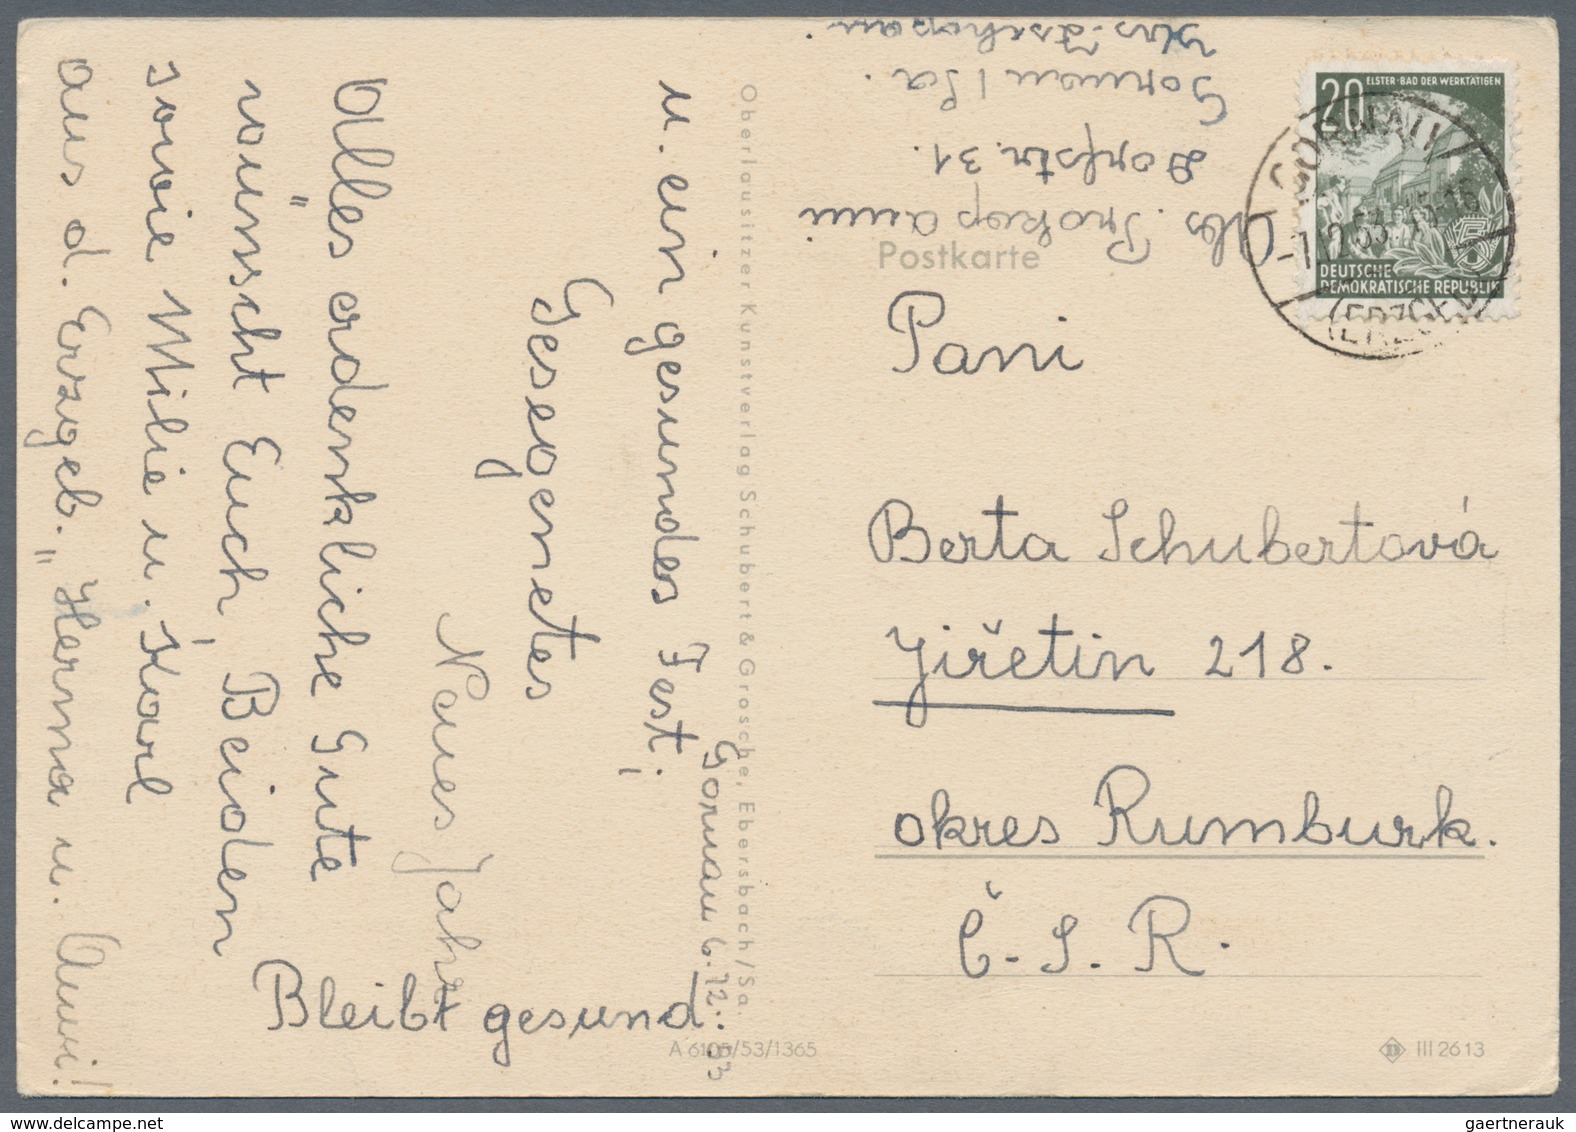 Gornau 6.12.53
u. ein gesundes Fest;
Gesegnetes
Neues Jahr
Alles erdenkliche Gute
wünscht Euch, Beiden
sowie Milie u. Karl
aus d. Erzgeb. "Herma u. Anni!
Bleibt gesund.
Oberlausitzer Kunstverlag Schubert & Grosche, Ebersbach/Sa.
A 6105/53/1365
Abs. Prokop Anni
Dorfstr. 31.
Gornau / Sa.
Krs. Zschopau.
20
ELSTER · BAD DER WERKTÄTIGEN
5
DEUTSCHE
DEMOKRATISCHE REPUBLIK
GORNAU
-7.12.53
(ERZGEB)
Postkarte
Pani
Berta Schubertová
Jiřetin 218.
okres Rumburk.
Č. S. R.
III 26 13
gaertnerauk